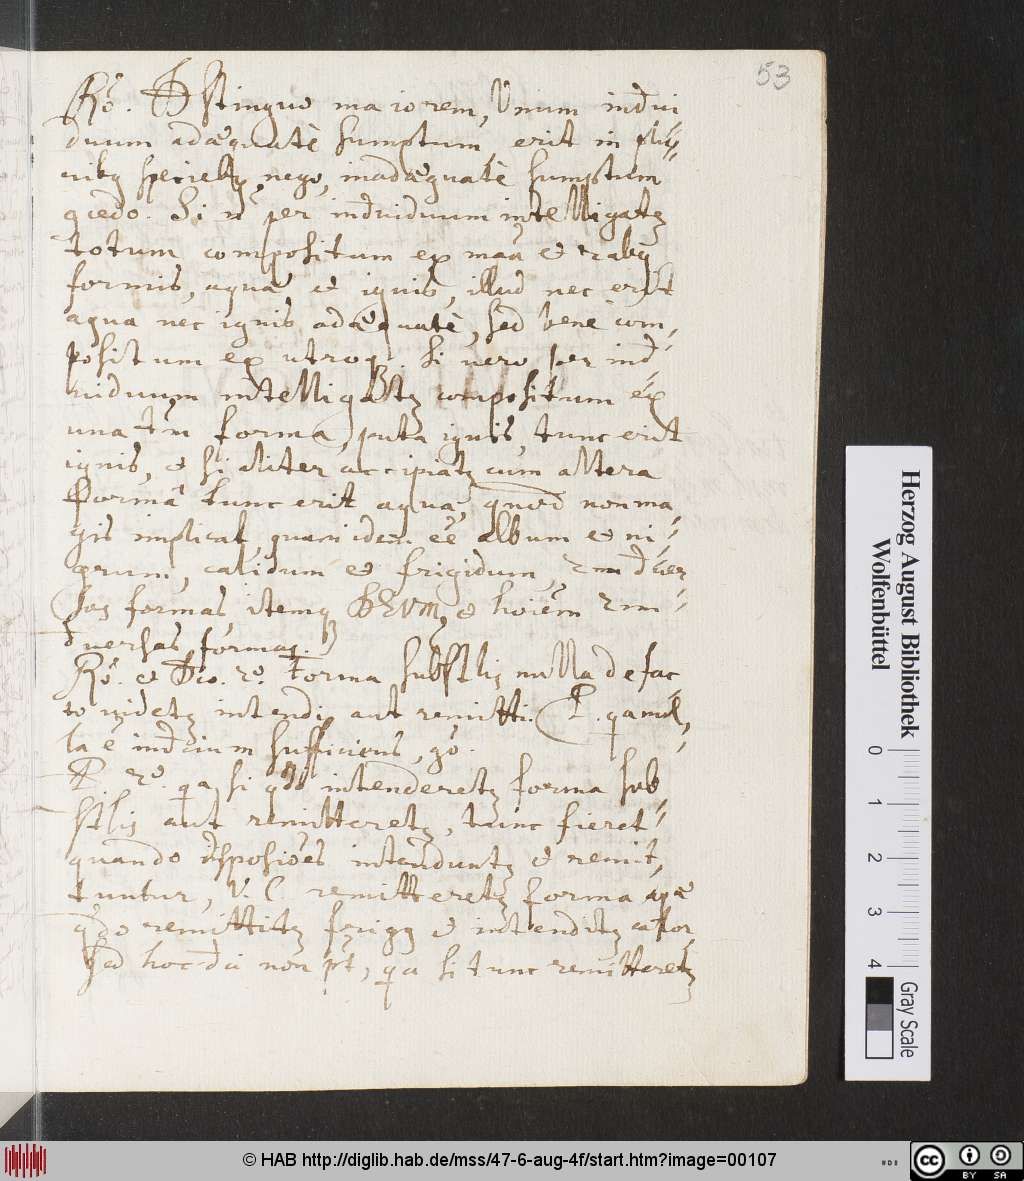 53
Rõ. Distinguo maiorem, Unum indivi
duum adæquatè sumptum, erit in plu=
ribꝯ speciebꝯ, nego, inadæquatè sumptum
cedo. Si n per individuum intelligatꝛ
totum compositum ex maã et
formis, aquæ et ignis, illud nec erit
aqua nec ignis adæquatè, sed bene com,
positum ex utroqꝫ. Si vero per ind=
viduum intelligatꝛ compositum ex
una tm forma, puta ignis, tunc erit
ignis, et si aliter accipiatꝛ cum altera
formâ tunc erit aqua, quod non ma,
gis implicat, quam idem eẽ album et ni=
grum, calidum et frigidum,
sas formas, itemqꝫ DEVM, et hoiẽm
diversas formas.
Rõ. et Dico. 2º. Forma substlis nulla de fac=
to videtꝛ intendi, aut remitti. P. qa nul,
la ẽ indicium sufficiens, gõ.
P 2º. qa, si qdo intenderetꝛ forma sub=
stlis aut remitteretꝛ, tunc fieret
quando dispositiões intenduntꝛ et remit,
tuntur, V. C. remitteretꝛ forma aquæ
qdo remittitꝛ frigꝯ et intenditꝛ calor,
Sed hoc dici non pt, qa si tunc remitteretꝛ
Herzog August Bibliothek
Wolfenbüttel
0 1 2 3 4
Gray Scale
© HAB http://diglib.hab.de/mss/47-6-aug-4f/start.htm?image=00107
cc BY SA